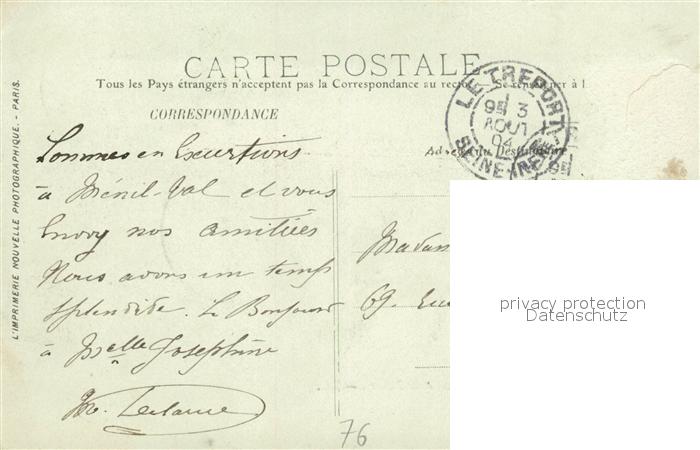 CARTE POSTALE
Tous les Pays étrangers n'acceptent pas la Correspondance au recto. Se renseigner à l
CORRESPONDANCE
LE TREPORT
9E 3
AOUT
04
SEINE-INFRE
Adresse du Destinataire
Sommes en Excurtions
à Ménil-Val et vous
Envoy nos amitiées
Nous avons un temps
splendide. Le Bonjour
à Melle Josephine
Madam
69. Rue
76
L'IMPRIMERIE NOUVELLE PHOTOGRAPHIQUE. - PARIS.
privacy protection
Datenschutz